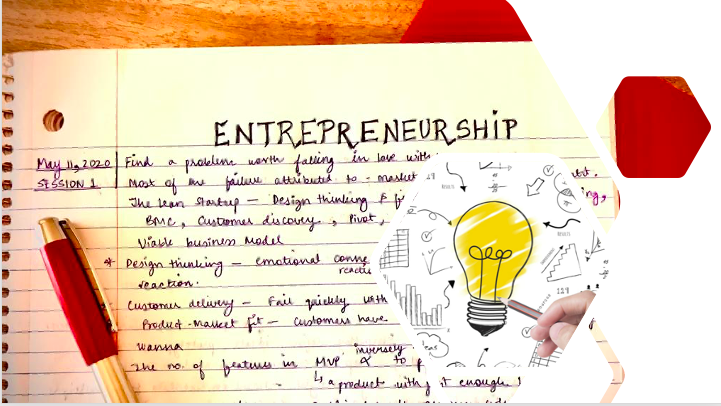 ENTREPRENEURSHIP
May 11, 2020
SESSION 1
Find a problem worth falling in love with
Most of the failure attributed to - market
The lean startup - Design thinking &
BMC, Customer discovery, Pivot,
Viable business Model
* Design thinking - emotional conne
reaction.
Customer delivery - Fail quickly with
Product-Market fit - Customers have
wanna
inversely
The no. of features in MVP ∝ to
↳ a product with j it enough